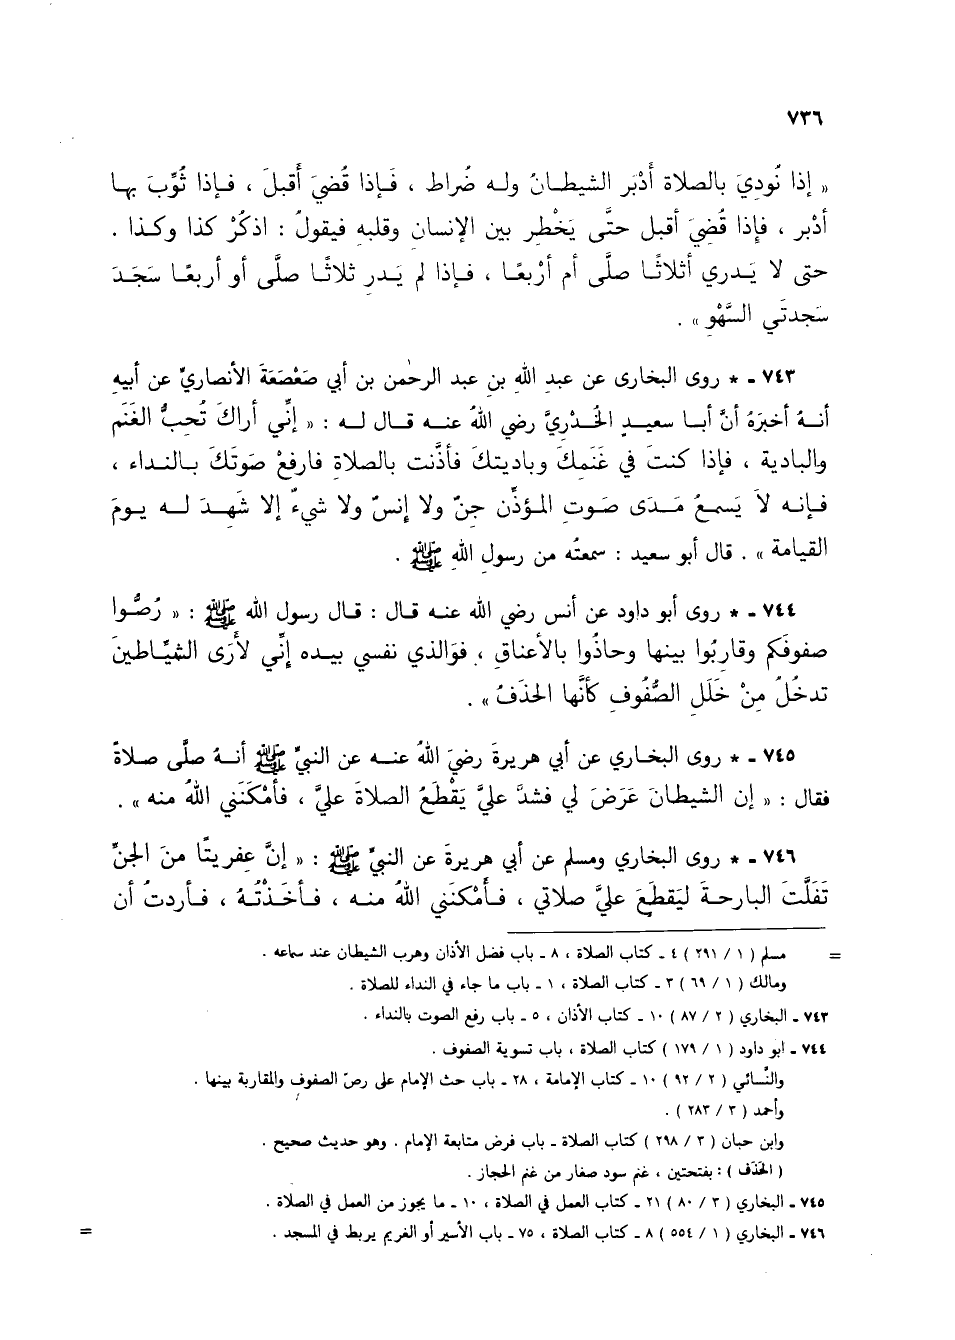 ٧٣٦
« إذا نُوديَ بالصلاة أَدْبَر الشيطـانُ ولـه ضُراط ، فَـإذا قُضيَ أَقبلَ ، فـإذا ثُوِّبَ بهـا
أدْبر ، فإِذا قُضِيَ أقبل حتَّى يَخْطِر بين الإنسانِ وقلبهِ فيقولُ : اذكُرْ كذا وكـذا .
حتى لا يَـدري أثلاثًـا صلَّى أم أرْبعًـا ، فـإذا لم يَـدر ثلاثًـا صلَّى أو أربعًـا سَجَـدَ
سَجدتَي السَّهْوِ » .
٧٤٣ - * روى البخارى عن عبد اللهِ بنِ عبد الرحمٰن بن أبي صَعْصَعَةَ الأنصاريِّ عن أبيهِ
أنـهُ أخبرَهُ أنَّ أبـا سعيـدٍ الخُـدْريَّ رضي اللهُ عنـه قـال لـه : « إنِّي أراكَ تُحبُّ الغَنَم
والبادية ، فإذا كنتَ في غَنَمِكَ وباديتكَ فأذَّنت بالصلاةِ فارفعْ صَوتَكَ بـالنـداء ،
فـإنـه لاَ يَسمـعُ مَـدَى صَـوتِ المـؤذِّنِ جنٌ ولا إنسٌ ولا شيءٌ إلا شَهِـدَ لـه يـومَ
القيامة » . قال أبو سعيد : سمعتُه من رسولِ اللهِ ﷺ .
٧٤٤ - * روى أبو داود عن أنس رضي الله عنـه قـال : قـال رسول الله ﷺ : « رُصُّـوا
صفوفَكم وقاربُوا بينها وحاذُوا بالأعناقِ ، فوَالذي نفسي بيـده إنِّي لأَرَى الشيَّـاطينَ
تدخُلُ مِنْ خَلَلِ الصُّفُوفِ كأنَّها الحذَفُ » .
٧٤٥ - * روى البخـاري عن أبي هريرةَ رضيَ اللهُ عنـه عن النبيِّ ﷺ أنـهُ صلَّى صلاةً
فقال : « إن الشيطانَ عَرَضَ لي فشدَّ عليَّ يَقْطَعُ الصلاةَ عليَّ ، فأمْكَنَني اللهُ منه » .
٧٤٦ - * روى البخاري ومسلم عن أبي هريرةَ عن النبيِّ ﷺ : « إنَّ عِفريتًا منَ الجنِّ
تَفَلَّتَ البارحـةَ ليَقطَعَ عليَّ صلاتي ، فـأمْكنَني اللهُ منـه ، فـأخَـذْتُـهُ ، فـأردتُ أن
= مسلم ( ١ / ٢٩١ ) ٤ ـ كتاب الصلاة ، ٨ ـ باب فضل الأذان وهرب الشيطان عند سماعه .
ومالك ( ١ / ٦٩ ) ٣ ـ كتاب الصلاة ، ١ ـ باب ما جاء في النداء للصلاة .
٧٤٣ ـ البخاري ( ٢ / ٨٧ ) ١٠ ـ كتاب الأذان ، ٥ ـ باب رفع الصوت بالنداء .
٧٤٤ ـ ابو داود ( ١ / ١٧٩ ) كتاب الصلاة ، باب تسوية الصفوف .
والنَّسائي ( ٢ / ٩٢ ) ١٠ ـ كتاب الإمامة ، ٢٨ ـ باب حث الإمام على رصّ الصفوف والمقاربة بينها .
وأحمد ( ٣ / ٢٨٣ ) .
وابن حبان ( ٣ / ٢٩٨ ) كتاب الصلاة ـ باب فرض متابعة الإمام . وهو حديث صحيح .
( الحَذَف ) : بفتحتين ، غنم سود صغار من غنم الحجاز .
٧٤٥ ـ البخاري ( ٣ / ٨٠ ) ٢١ ـ كتاب العمل في الصلاة ، ١٠ ـ ما يجوز من العمل في الصلاة .
٧٤٦ ـ البخاري ( ١ / ٥٥٤ ) ٨ ـ كتاب الصلاة ، ٧٥ ـ باب الأسير أو الغريم يربط في المسجد . =